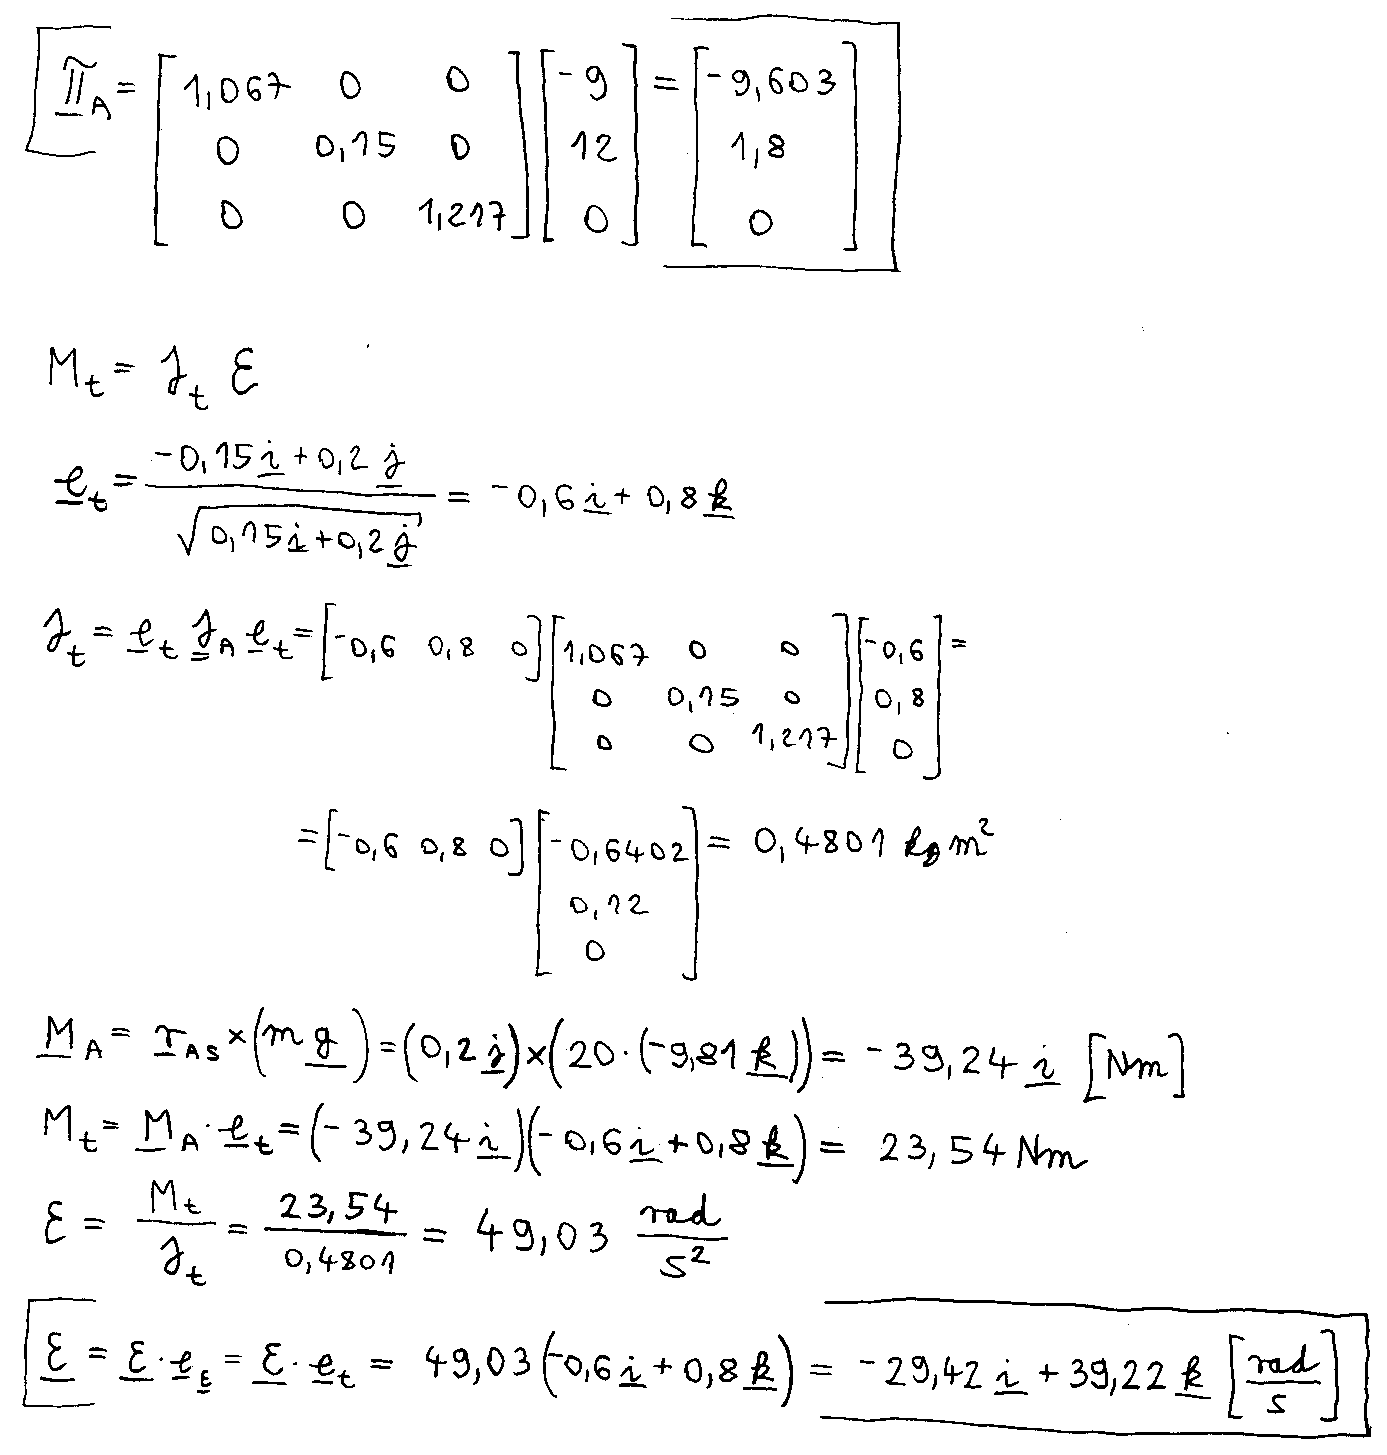 Π_A = [1,067 0 0; 0 0,15 0; 0 0 1,217] [-9; 12; 0] = [-9,603; 1,8; 0]
M_t = J_t ε
e_t = (-0,15 i + 0,2 j) / √(0,15 i + 0,2 j) = -0,6 i + 0,8 k
J_t = e_t J_A e_t = [-0,6 0,8 0] [1,067 0 0; 0 0,15 0; 0 0 1,217] [-0,6; 0,8; 0] =
= [-0,6 0,8 0] [-0,6402; 0,12; 0] = 0,4801 kg m²
M_A = r_AS × (m g) = (0,2 j) × (20·(-9,81 k)) = -39,24 i [Nm]
M_t = M_A · e_t = (-39,24 i)(-0,6 i + 0,8 k) = 23,54 Nm
ε = M_t / J_t = 23,54 / 0,4801 = 49,03 rad/s²
ε = ε · e_ε = ε · e_t = 49,03 (-0,6 i + 0,8 k) = -29,42 i + 39,22 k [rad/s]